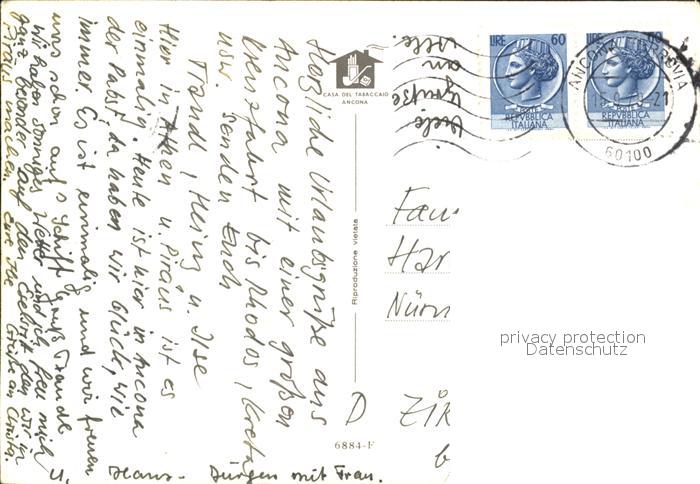 Herzliche Urlaubsgrüße aus
Ancona mit einer großen
Kreuzfahrt bis Rhodos, Kreta
usw. senden Euch
Traudl, Heinz u. Ilse
Hier in Athen u. Piräus ist es
einmalig. Heute ist hier in Ancona
der Pabst da haben wir Glück, wie
immer. Es ist einmalig und wir freuen
uns schon aufs Schiff. Gruß Traudl
wir haben sonniges Wetter und ich freu mich
ganz besonder auf den den wir in
Piräus machen. Eure Ilse Grüße an
u. Hans-Jürgen mit Frau.
CASA DEL TABACCAIO
ANCONA
Riproduzione vietata
6884-F
Viele
Grüße
an
alle.
LIRE 60
POSTE
REPVBBLICA
ITALIANA
LIRE 60
POSTE
REPVBBLICA
ITALIANA
ANCONA FERROVIA
60100
Fam
Har
Nürn
D
privacy protection
Datenschutz